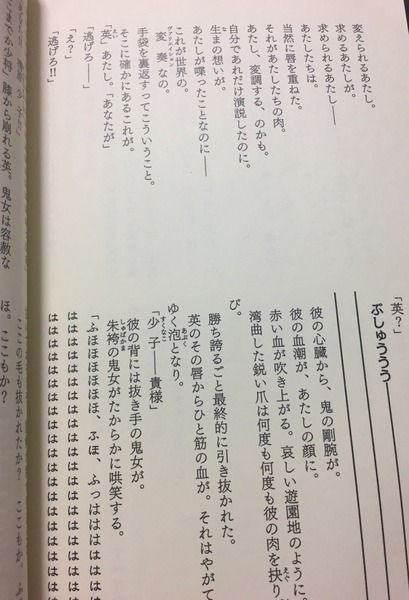 変えられるあたし。
求めるあたしが。
求められるあたし――
あたしたちは。
当然に唇を重ねた。
それがあたしたちの肉。
あたし、変調する、のかも。
自分であれだけ演説したのに。
生まの想いが。
あたしが喋ったことなのに――
これが世界の。
変奏なの。
手袋を裏返すってこういうこと。
そこに確かにあるこれが。
「英」あたし。「あなたが」
「逃げろ――」
「え?」
「逃げろ!!」
「英?」
ぶしゅううう――
彼の心臓から、鬼の剛腕が。
彼の血潮が、あたしの顔に。
赤い血が吹き上がる。哀しい遊園地のように。
湾曲した鋭い爪は何度も何度も彼の肉を抉り
び。
勝ち誇るごと最終的に引き抜かれた。
英のその唇からひと筋の血が。それはやがて
ゆく泡となり。
「少子――貴様」
彼の背には抜き手の鬼女が。
朱袴の鬼女がたからかに哄笑する。
「ふほほほほほほ、ふほ、ふっははははは
はははははははははははははははは
はははははははははははははははは
こまでか少将」膝から崩れる英。鬼女は容赦な
ここの毛も抜かれたか? ここもか。ふ
ほ。ここもか?